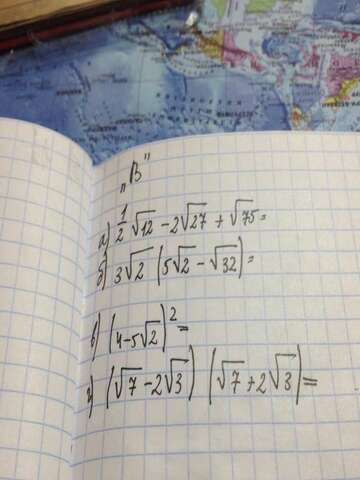 „В"
а) 1/2 √12 - 2√27 + √75 =
б) 3√2 (5√2 - √32) =
в) (4 - 5√2)² =
г) (√7 - 2√3) (√7 + 2√3) =